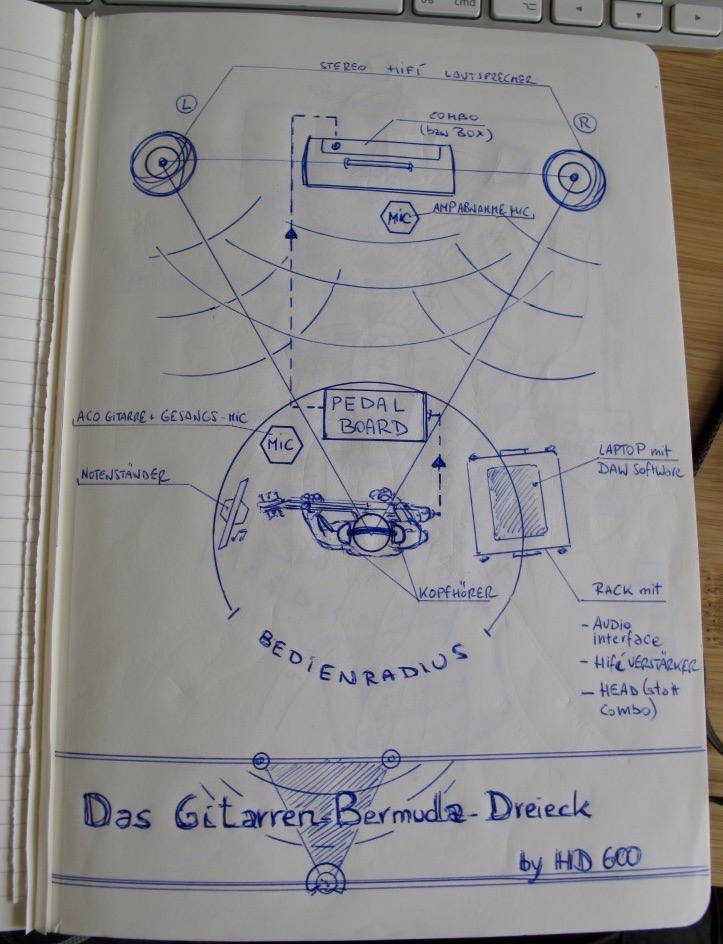 cmd
STEREO HIFI LAUTSPRECHER
L
R
COMBO
(bzw BOX)
MIC
AMPABNAHME MIC
PEDAL
BOARD
ACO GITARRE + GESANGS-MIC
MIC
NOTENSTÄNDER
LAPTOP mit
DAW Software
KOPFHÖRER
RACK mit
- AUDIO
interface
- Hifi VERSTÄRKER
- HEAD (statt
Combo)
BEDIENRADIUS
Das Gitarren-Bermuda-Dreieck
by HD 600